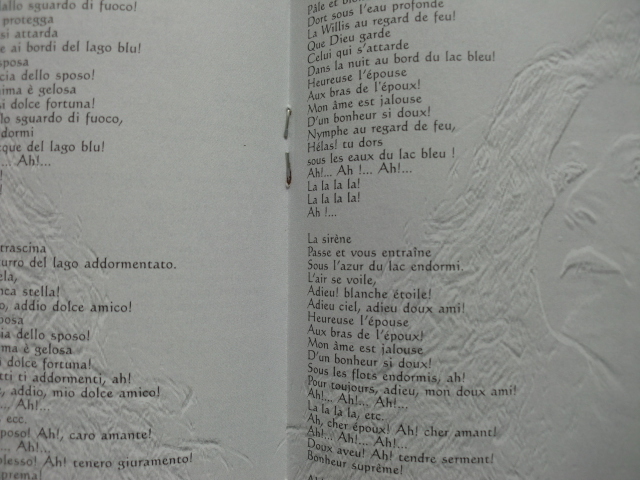 allo sguardo di fuoco!
protegga
si attarda
e ai bordi del lago blu!
sposa
cia dello sposo!
ima è gelosa
i dolce fortuna!
lo sguardo di fuoco,
dormi
cque del lago blu!
... Ah!...
!
!
trascina
urro del lago addormentato.
ela,
nca stella!
o, addio dolce amico!
posa
ia dello sposo!
ma è gelosa
dolce fortuna!
tti ti addormenti, ah!
, addio, mio dolce amico!
... Ah!...
ecc.
poso! Ah!, caro amante!
... Ah!...
plesso! Ah! tenero giuramento!
prema!
Pâle et
Dort sous l'eau profonde
La Willis au regard de feu!
Que Dieu garde
Celui qui s'attarde
Dans la nuit au bord du lac bleu!
Heureuse l'épouse
Aux bras de l'époux!
Mon âme est jalouse
D'un bonheur si doux!
Nymphe au regard de feu,
Hélas! tu dors
sous les eaux du lac bleu !
Ah!... Ah !... Ah!...
La la la la!
La la la la!
Ah !...
La sirène
Passe et vous entraîne
Sous l'azur du lac endormi.
L'air se voile,
Adieu! blanche étoile!
Adieu ciel, adieu doux ami!
Heureuse l'épouse
Aux bras de l'époux!
Mon âme est jalouse
D'un bonheur si doux!
Sous les flots endormis, ah!
Pour toujours, adieu, mon doux ami!
Ah!... Ah!... Ah!...
La la la la, etc.
Ah, cher époux! Ah! cher amant!
Ah!... Ah!... Ah!...
Doux aveu! Ah! tendre serment!
Bonheur suprême!